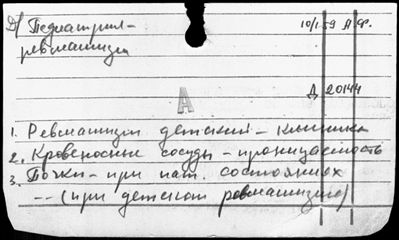 Д/ Педиатрия-
ревматизм
10/I 59 А.Ф.
Д 20144
А
1. Ревматизм детский - клиника
2. Кровеносные сосуды - проницаемость
3. Почки - при пат. состояниях
-- (при детском ревматизме)